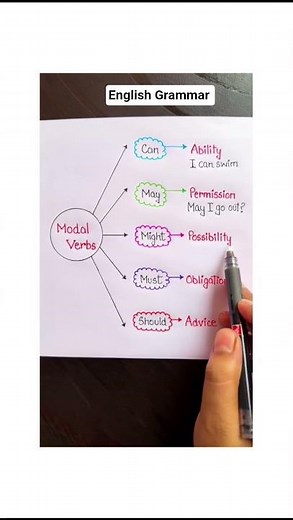 English Grammar
Modal
Verbs
Can
Ability
I can swim
May
Permission
May I go out?
Might
Possibility
Must
Obligation
Should
Advice